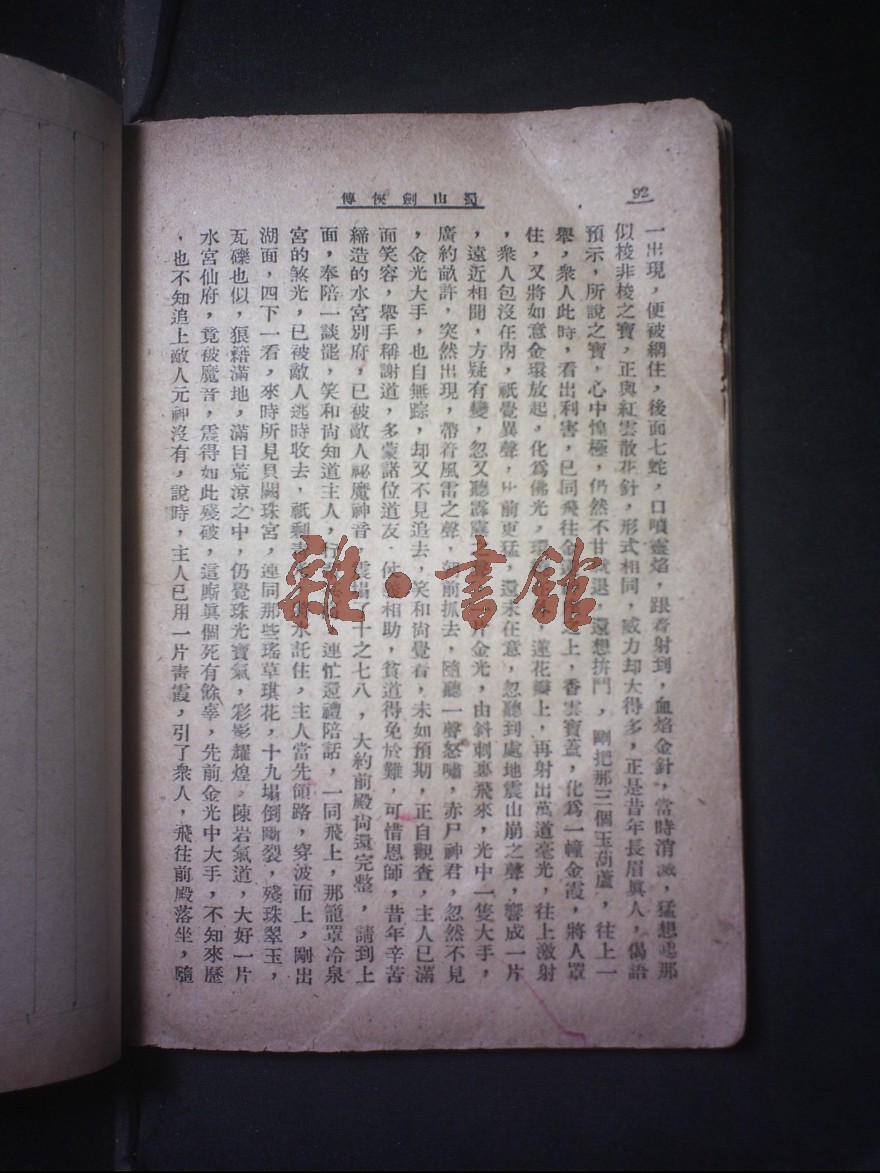 92
蜀山劍俠傳
一出現，便被網住，後面七蛇，口噴靈焰，跟着射到，血焰金針，當時消滅，猛想起那
似梭非梭之寶，正與紅雲散花針，形式相同，威力却大得多，正是昔年長眉眞人，偈語
預示，所說之寶，心中惶極，仍然不甘就退，還想拚鬥，剛把那三個玉葫蘆，往上一
舉，衆人此時，看出利害，已同飛往金之上，香雲寶蓋，化爲一幢金霞，將人罩
住，又將如意金環放起，化爲佛光，環蓮花瓣上，再射出萬道毫光，往上激射
，衆人包沒在內，祇覺異聲，比前更猛，還未在意，忽聽到處地震山崩之聲，響成一片
，遠近相聞，方疑有變，忽又聽霹靂片金光，由斜刺裏飛來，光中一隻大手，
廣約畝許，突然出現，帶着風雷之聲，朝前抓去，隨聽一聲怒嘯，赤尸神君，忽然不見
，金光大手，也自無踪，却又不見追去，笑和尙覺着，未如預期，正自觀查，主人已滿
面笑容，舉手稱謝道，多蒙諸位道友，仗義相助，貧道得免於難，可惜恩師，昔年辛苦
締造的水宮別府，已被敵人祕魔神音，震塌了十之七八，大約前殿尙還完整，請到上
面，奉陪一談罷，笑和尙知道主人，行連忙還禮陪話，一同飛上，那籠罩冷泉
宮的煞光，已被敵人逃時收去，祇剩水託住，主人當先領路，穿波而上，剛出
湖面，四下一看，來時所見貝闕珠宮，連同那些瑤草琪花，十九塌倒斷裂，殘珠翠玉，
瓦礫也似，狼藉滿地，滿目荒涼之中，仍覺珠光寶氣，彩影耀煌，陳岩氣道，大好一片
水宮仙府，竟被魔音，震得如此殘破，這廝眞個死有餘辜，先前金光中大手，不知來歷
，也不知追上敵人元神沒有，說時，主人已用一片靑霞，引了衆人，飛往前殿落坐，隨
雜·書館